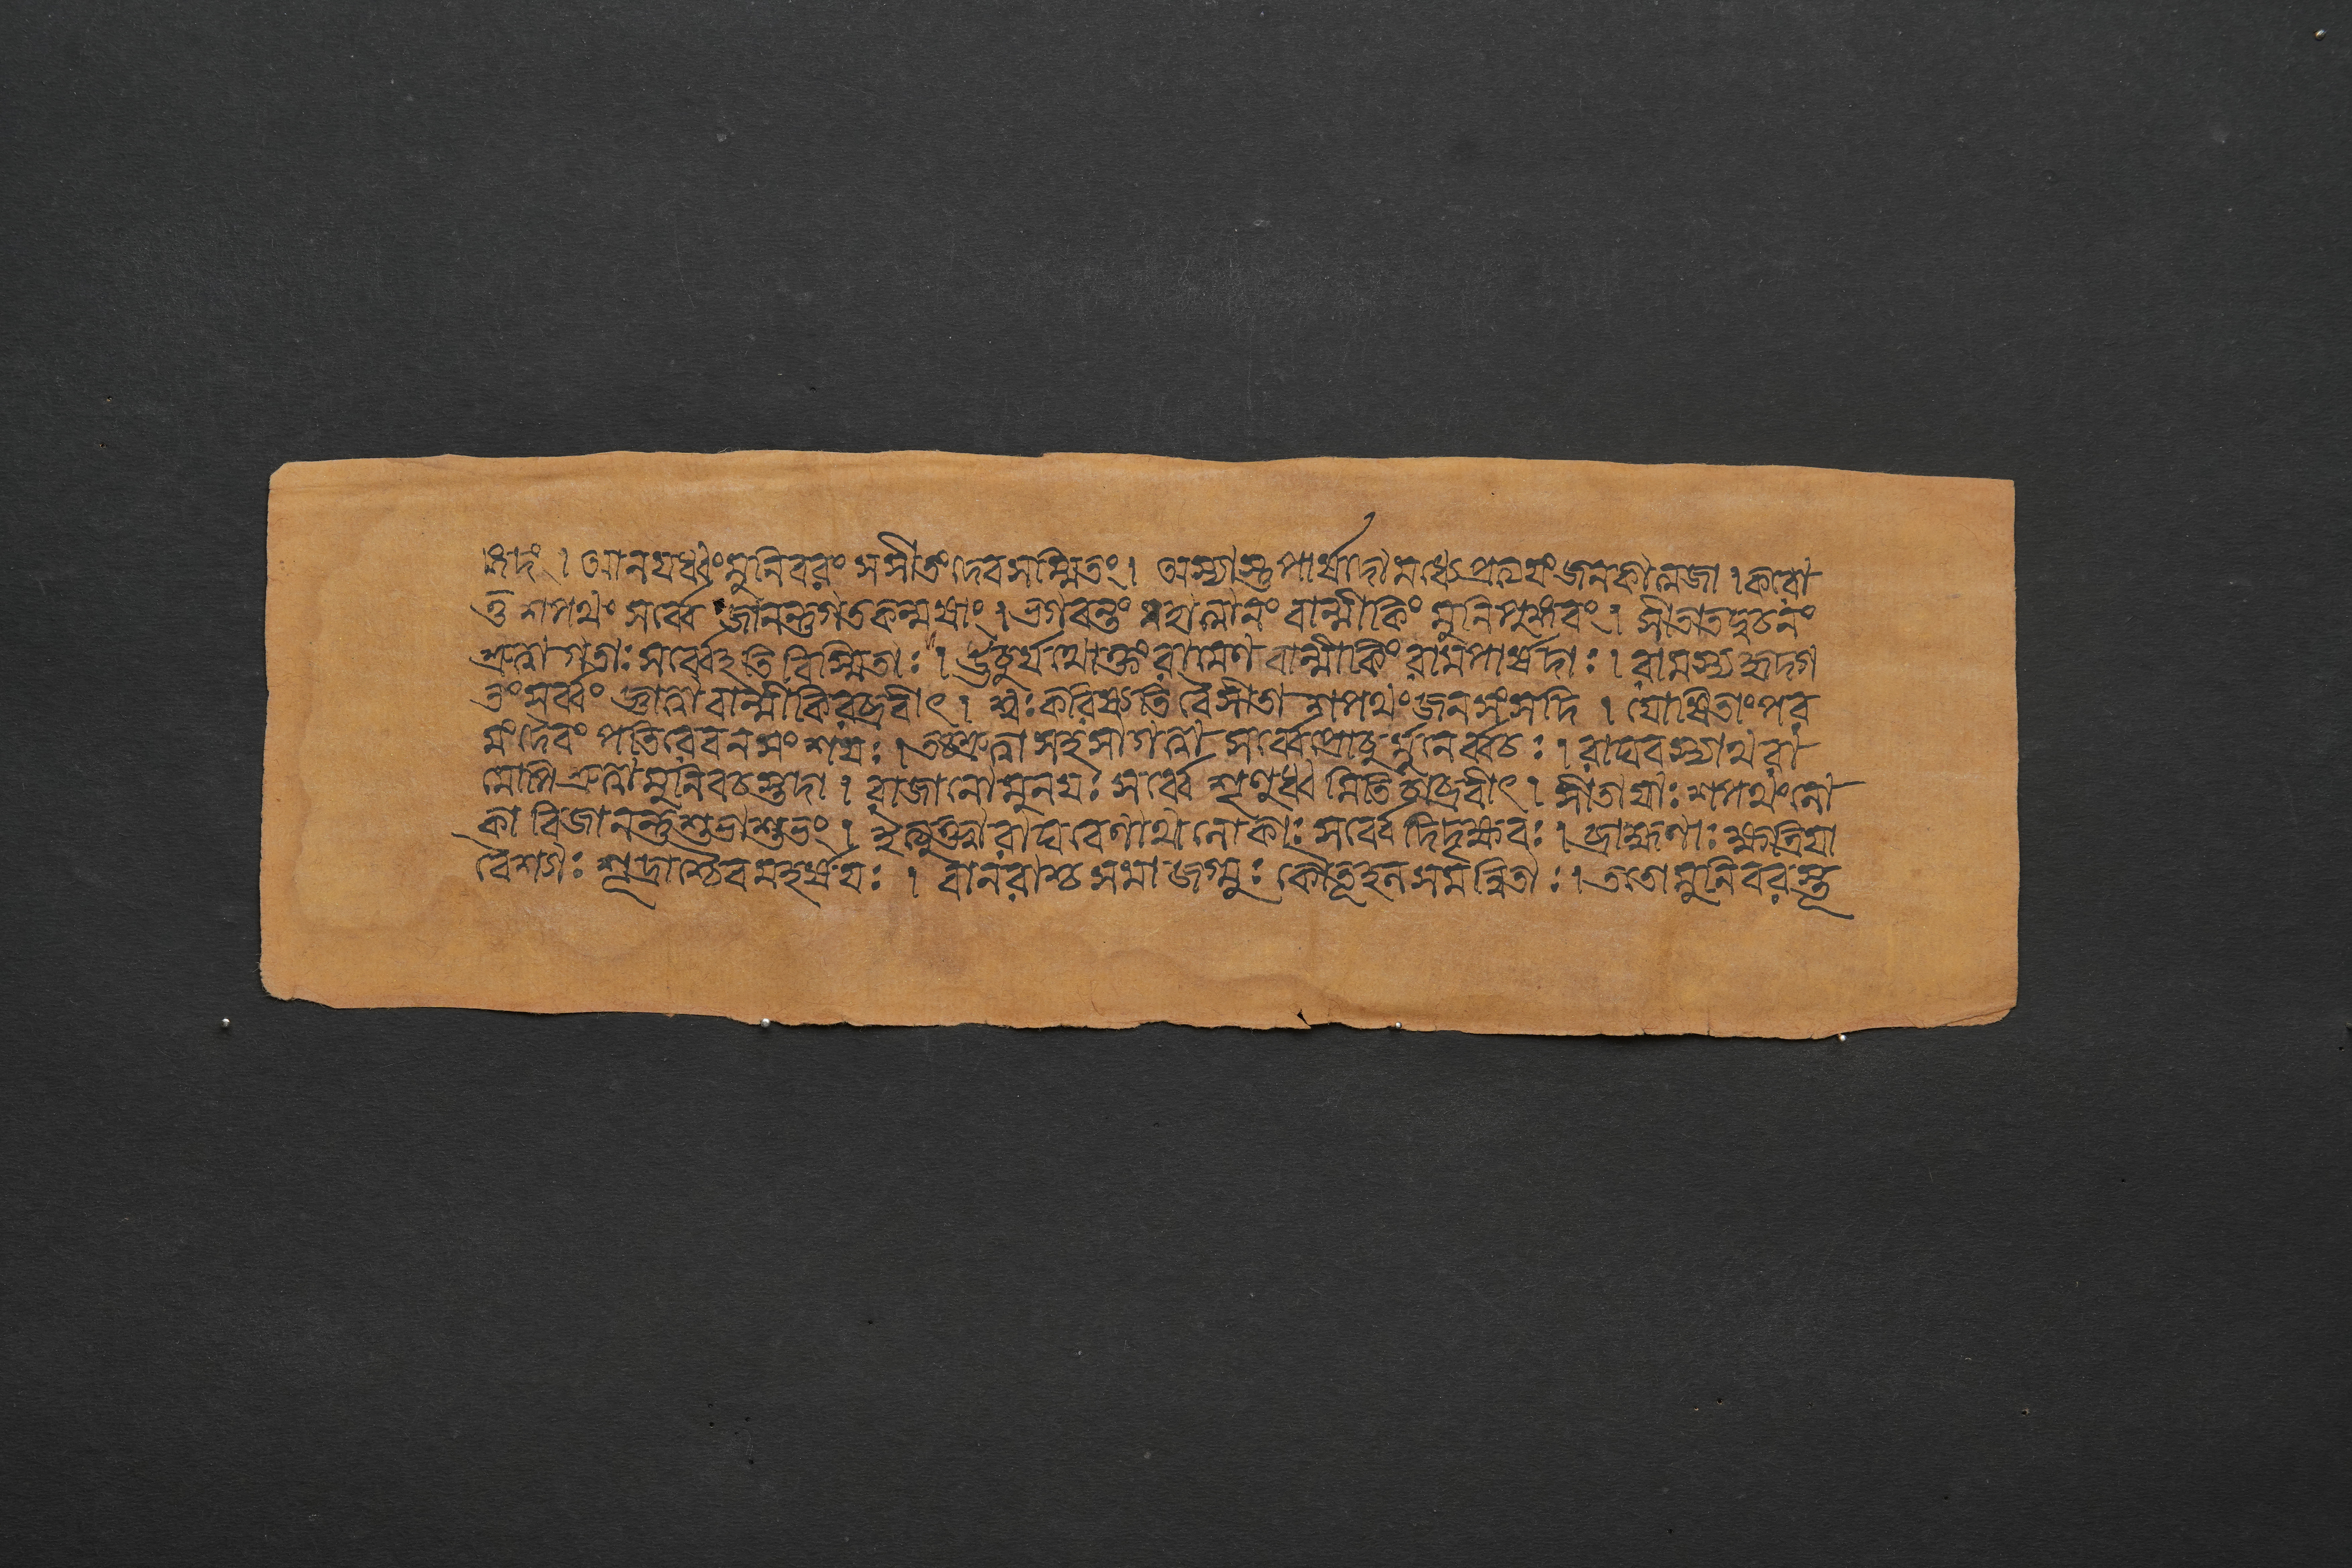 ঙ্গদং । আনয়ধ্বং মুনিবরং সসীতং দেবসম্মিতং । অস্যাস্তু পার্ষদো মধ্যে প্রত্যয়ং জনকাত্মজা । করো
তু শপথং সর্ব্বে জানন্তু গতকল্মষাং । ভগবন্তং মহাত্মানং বাল্মীকিং মুনিপুঙ্গবং । সীতাতদ্বচনং
শ্রুত্বা গতাঃ সর্ব্বেহতি বিস্মিতাঃ । ঊচুর্যথোক্তং রামেণ বাল্মীকিং রামপার্ষদাঃ । রামস্য হৃদগ
তং সর্ব্বং জ্ঞাত্বা বাল্মীকিরব্রবীৎ । শ্বঃ করিষ্যতি বৈ সীতা শপথং জনসংসদি । যোষিতাং পর
মং দৈবং পতিরেব ন সংশয়ঃ । তচ্ছ্রুত্বা সহসা গত্বা সর্ব্বে প্রোচুর্ম্মুনের্ব্বচঃ । রাঘবস্যাথ রা
মোপি শ্রুত্বা মুনিবচস্তদা । রাজানো মুনয়ঃ সর্ব্বে শৃণুধ্বমিতি চাব্রবীৎ । সীতায়াঃ শপথং লো
কা বিজানন্তু শুভাশুভং । ইত্যুক্তা রাঘবেণাথ লোকাঃ সর্ব্বে দিদৃক্ষবঃ । ব্রাহ্মণাঃ ক্ষত্রিয়া
বৈশ্যাঃ শূদ্রাশ্চৈব মহর্ষয়ঃ । বানরাশ্চ সমাজগ্মুঃ কৌতূহলসমন্বিতাঃ । ততো মুনিবরস্তূ